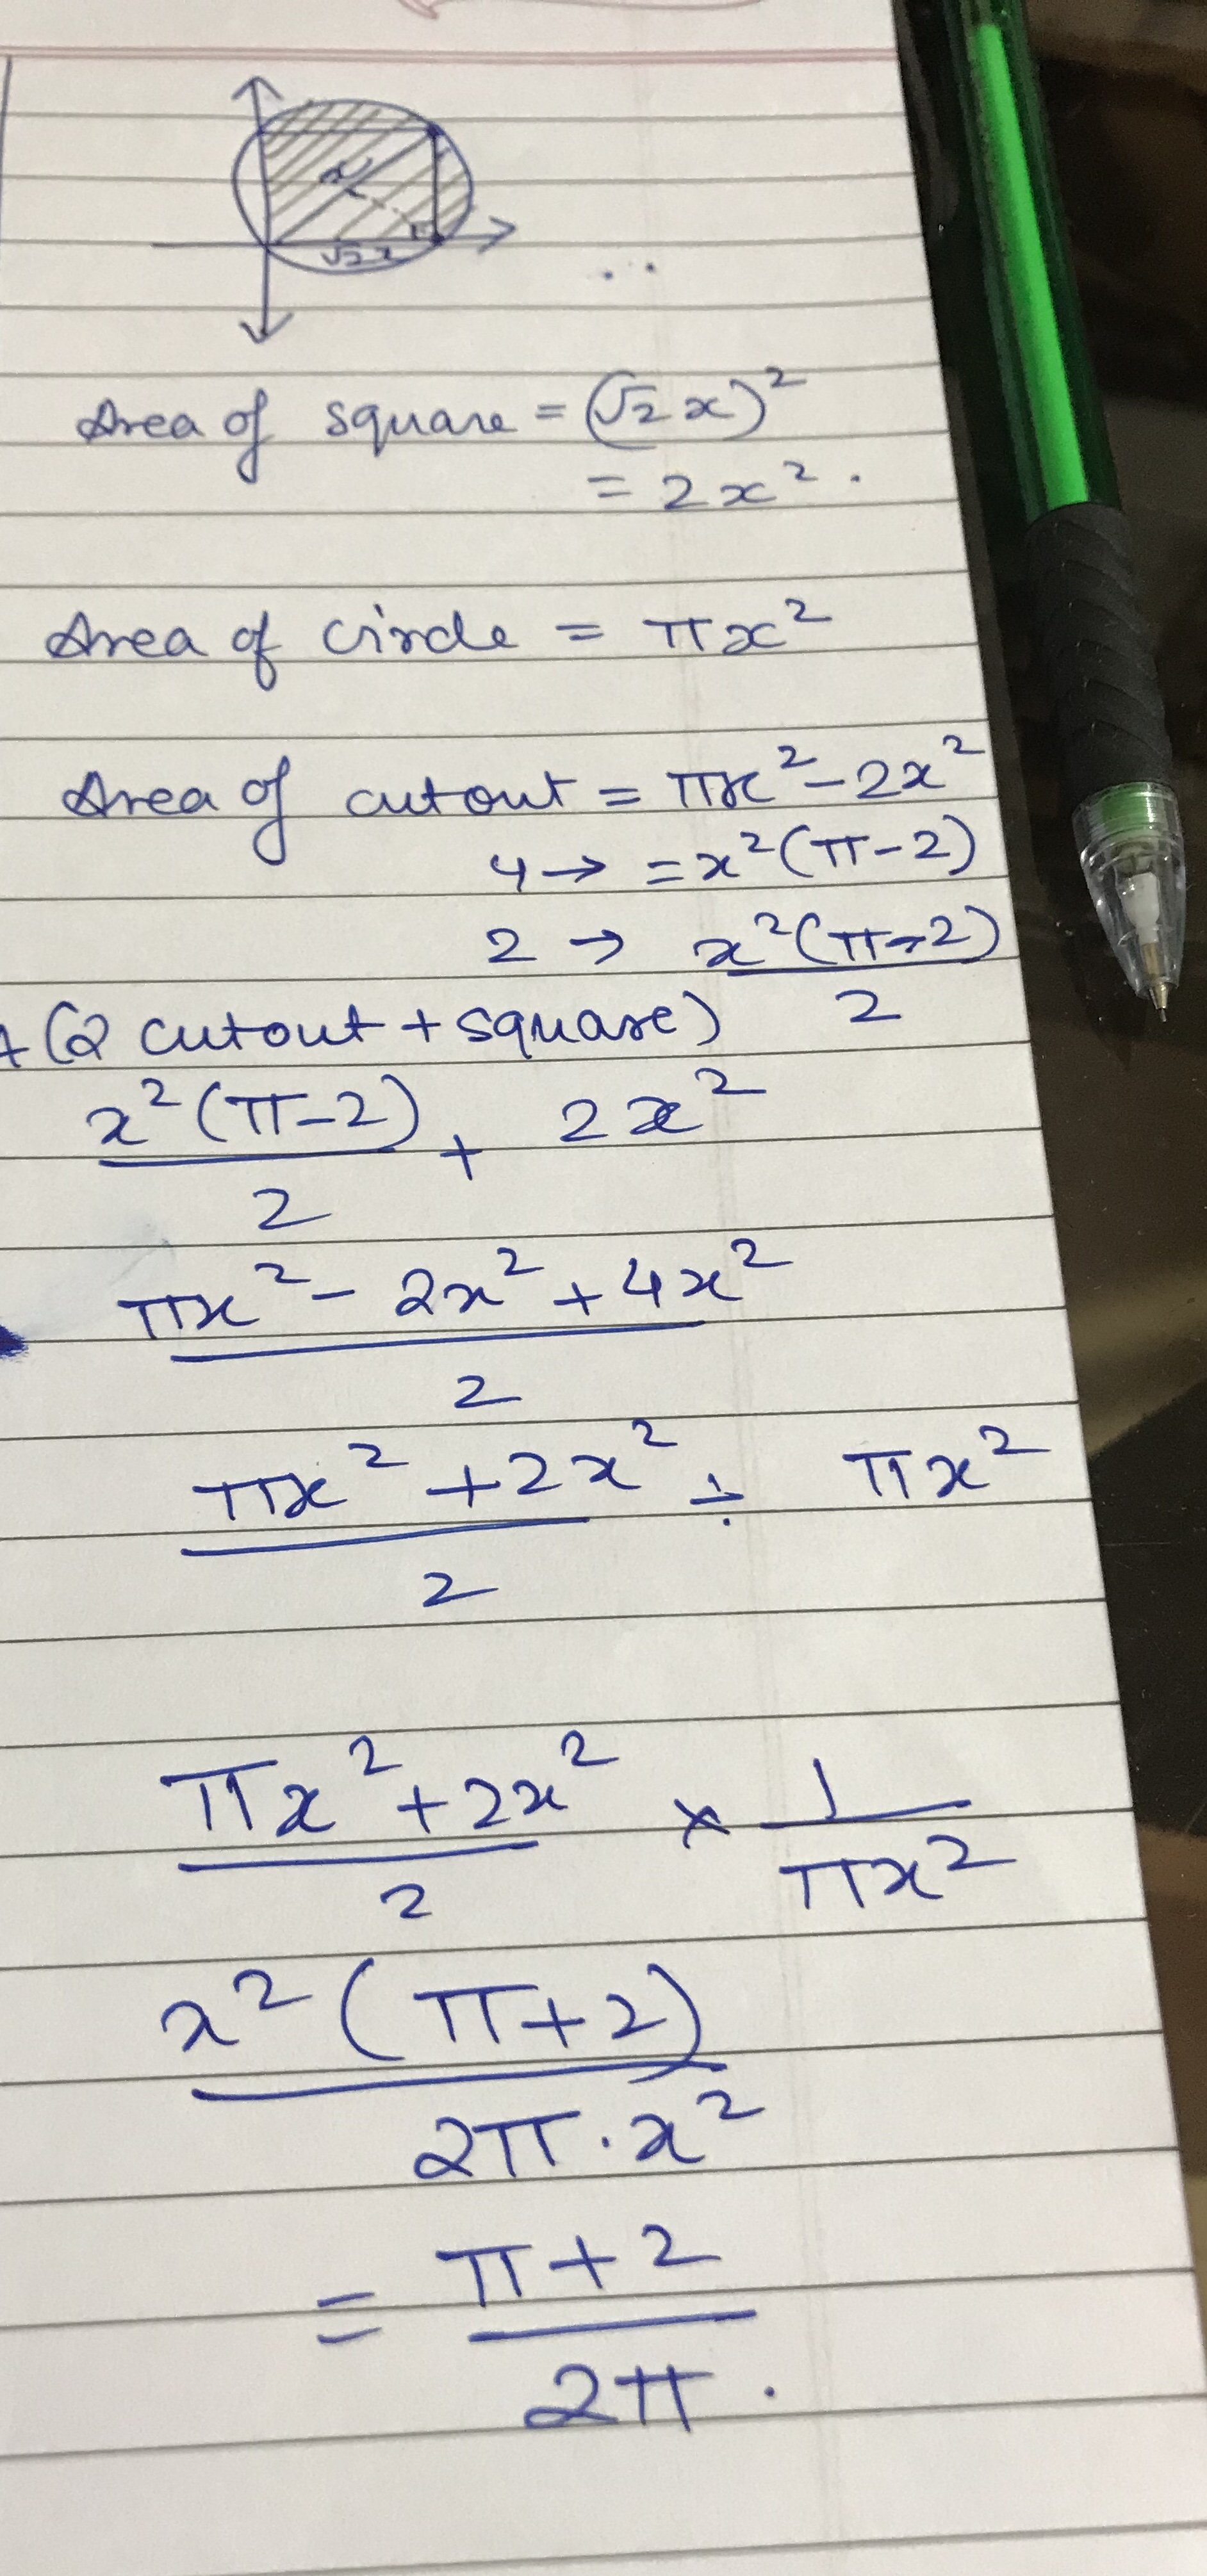 x
√2x
Area of square = (√2 x)²
= 2x².
Area of circle = πx²
Area of cutout = πx² - 2x²
4 → = x²(π-2)
2 → x²(π-2)/2
A(2 cutout + square)
x²(π-2)/2 + 2x²
πx² - 2x² + 4x²/2
πx² + 2x²/2 ÷ πx²
πx² + 2x²/2 × 1/πx²
x²(π+2)/2π·x²
= π+2/2π.